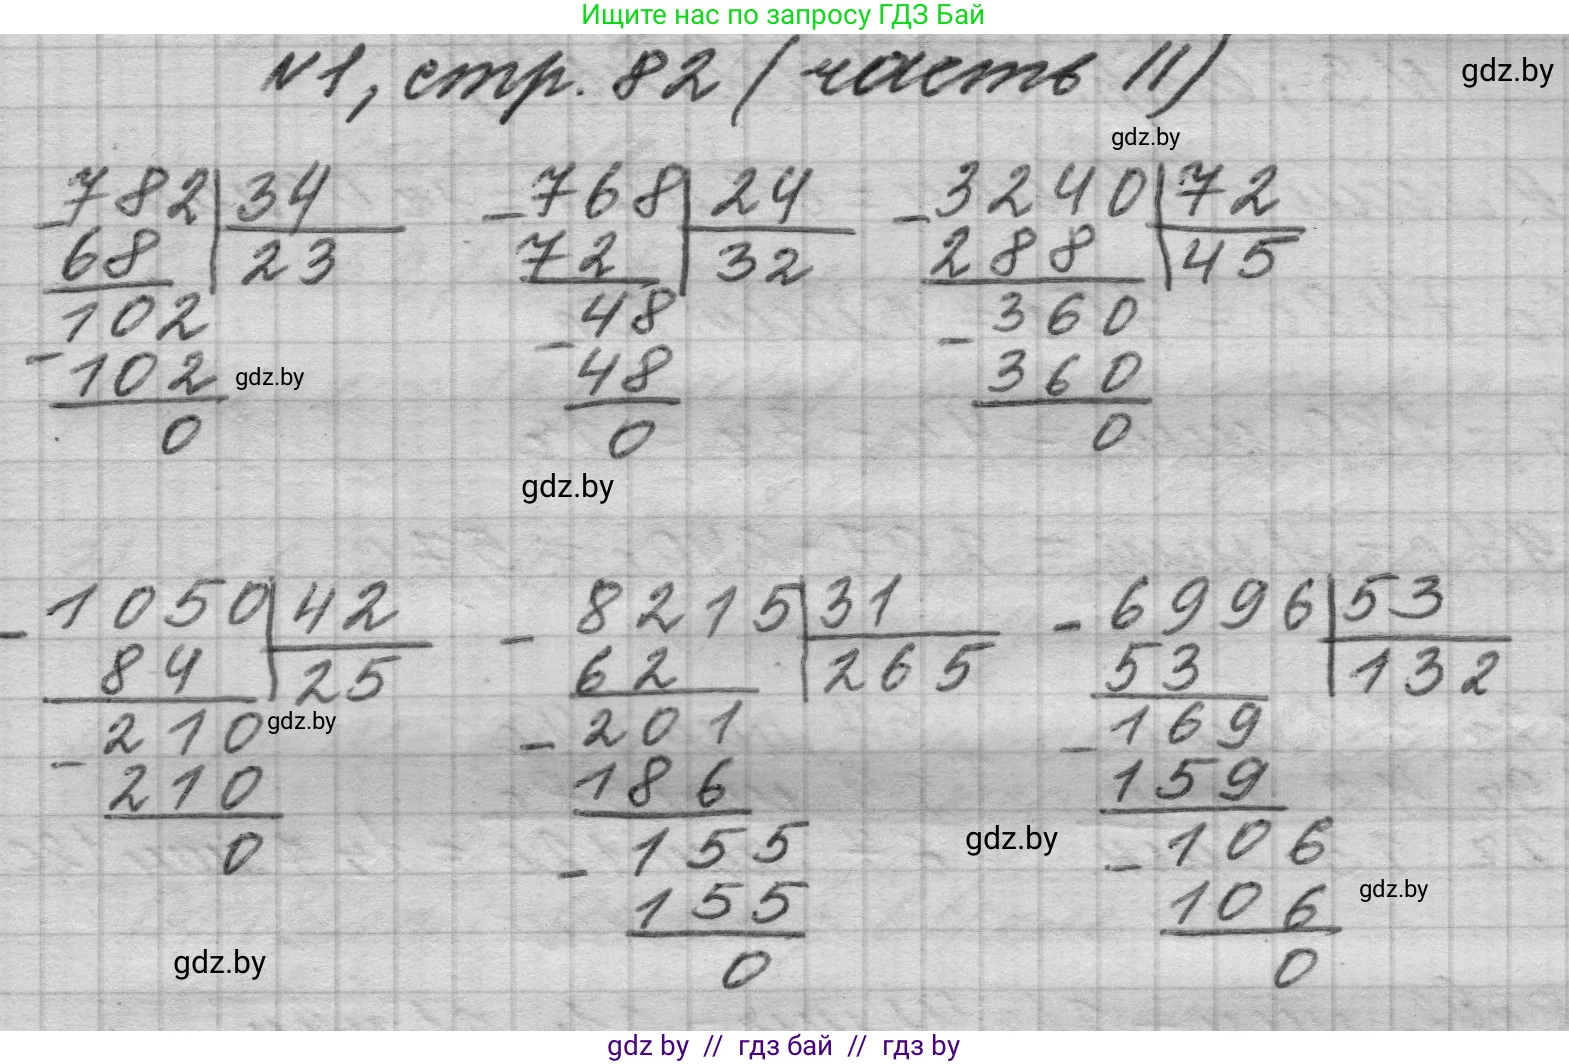 Ищите нас по запросу ГДЗ Бай
№1, стр. 82 (часть II)
gdz.by
gdz.by
- 782 | 34
68 | 23
102
- 102
0
gdz.by
- 768 | 24
72 | 32
48
- 48
0
gdz.by
- 3240 | 72
288 | 45
- 360
360
0
- 1050 | 42
84 | 25
- 210
210
0
gdz.by
gdz.by
- 8215 | 31
62 | 265
- 201
186
- 155
155
0
gdz.by
- 6996 | 53
53 | 132
- 169
159
- 106
106
0
gdz.by
gdz by // гдз бай // гдз by